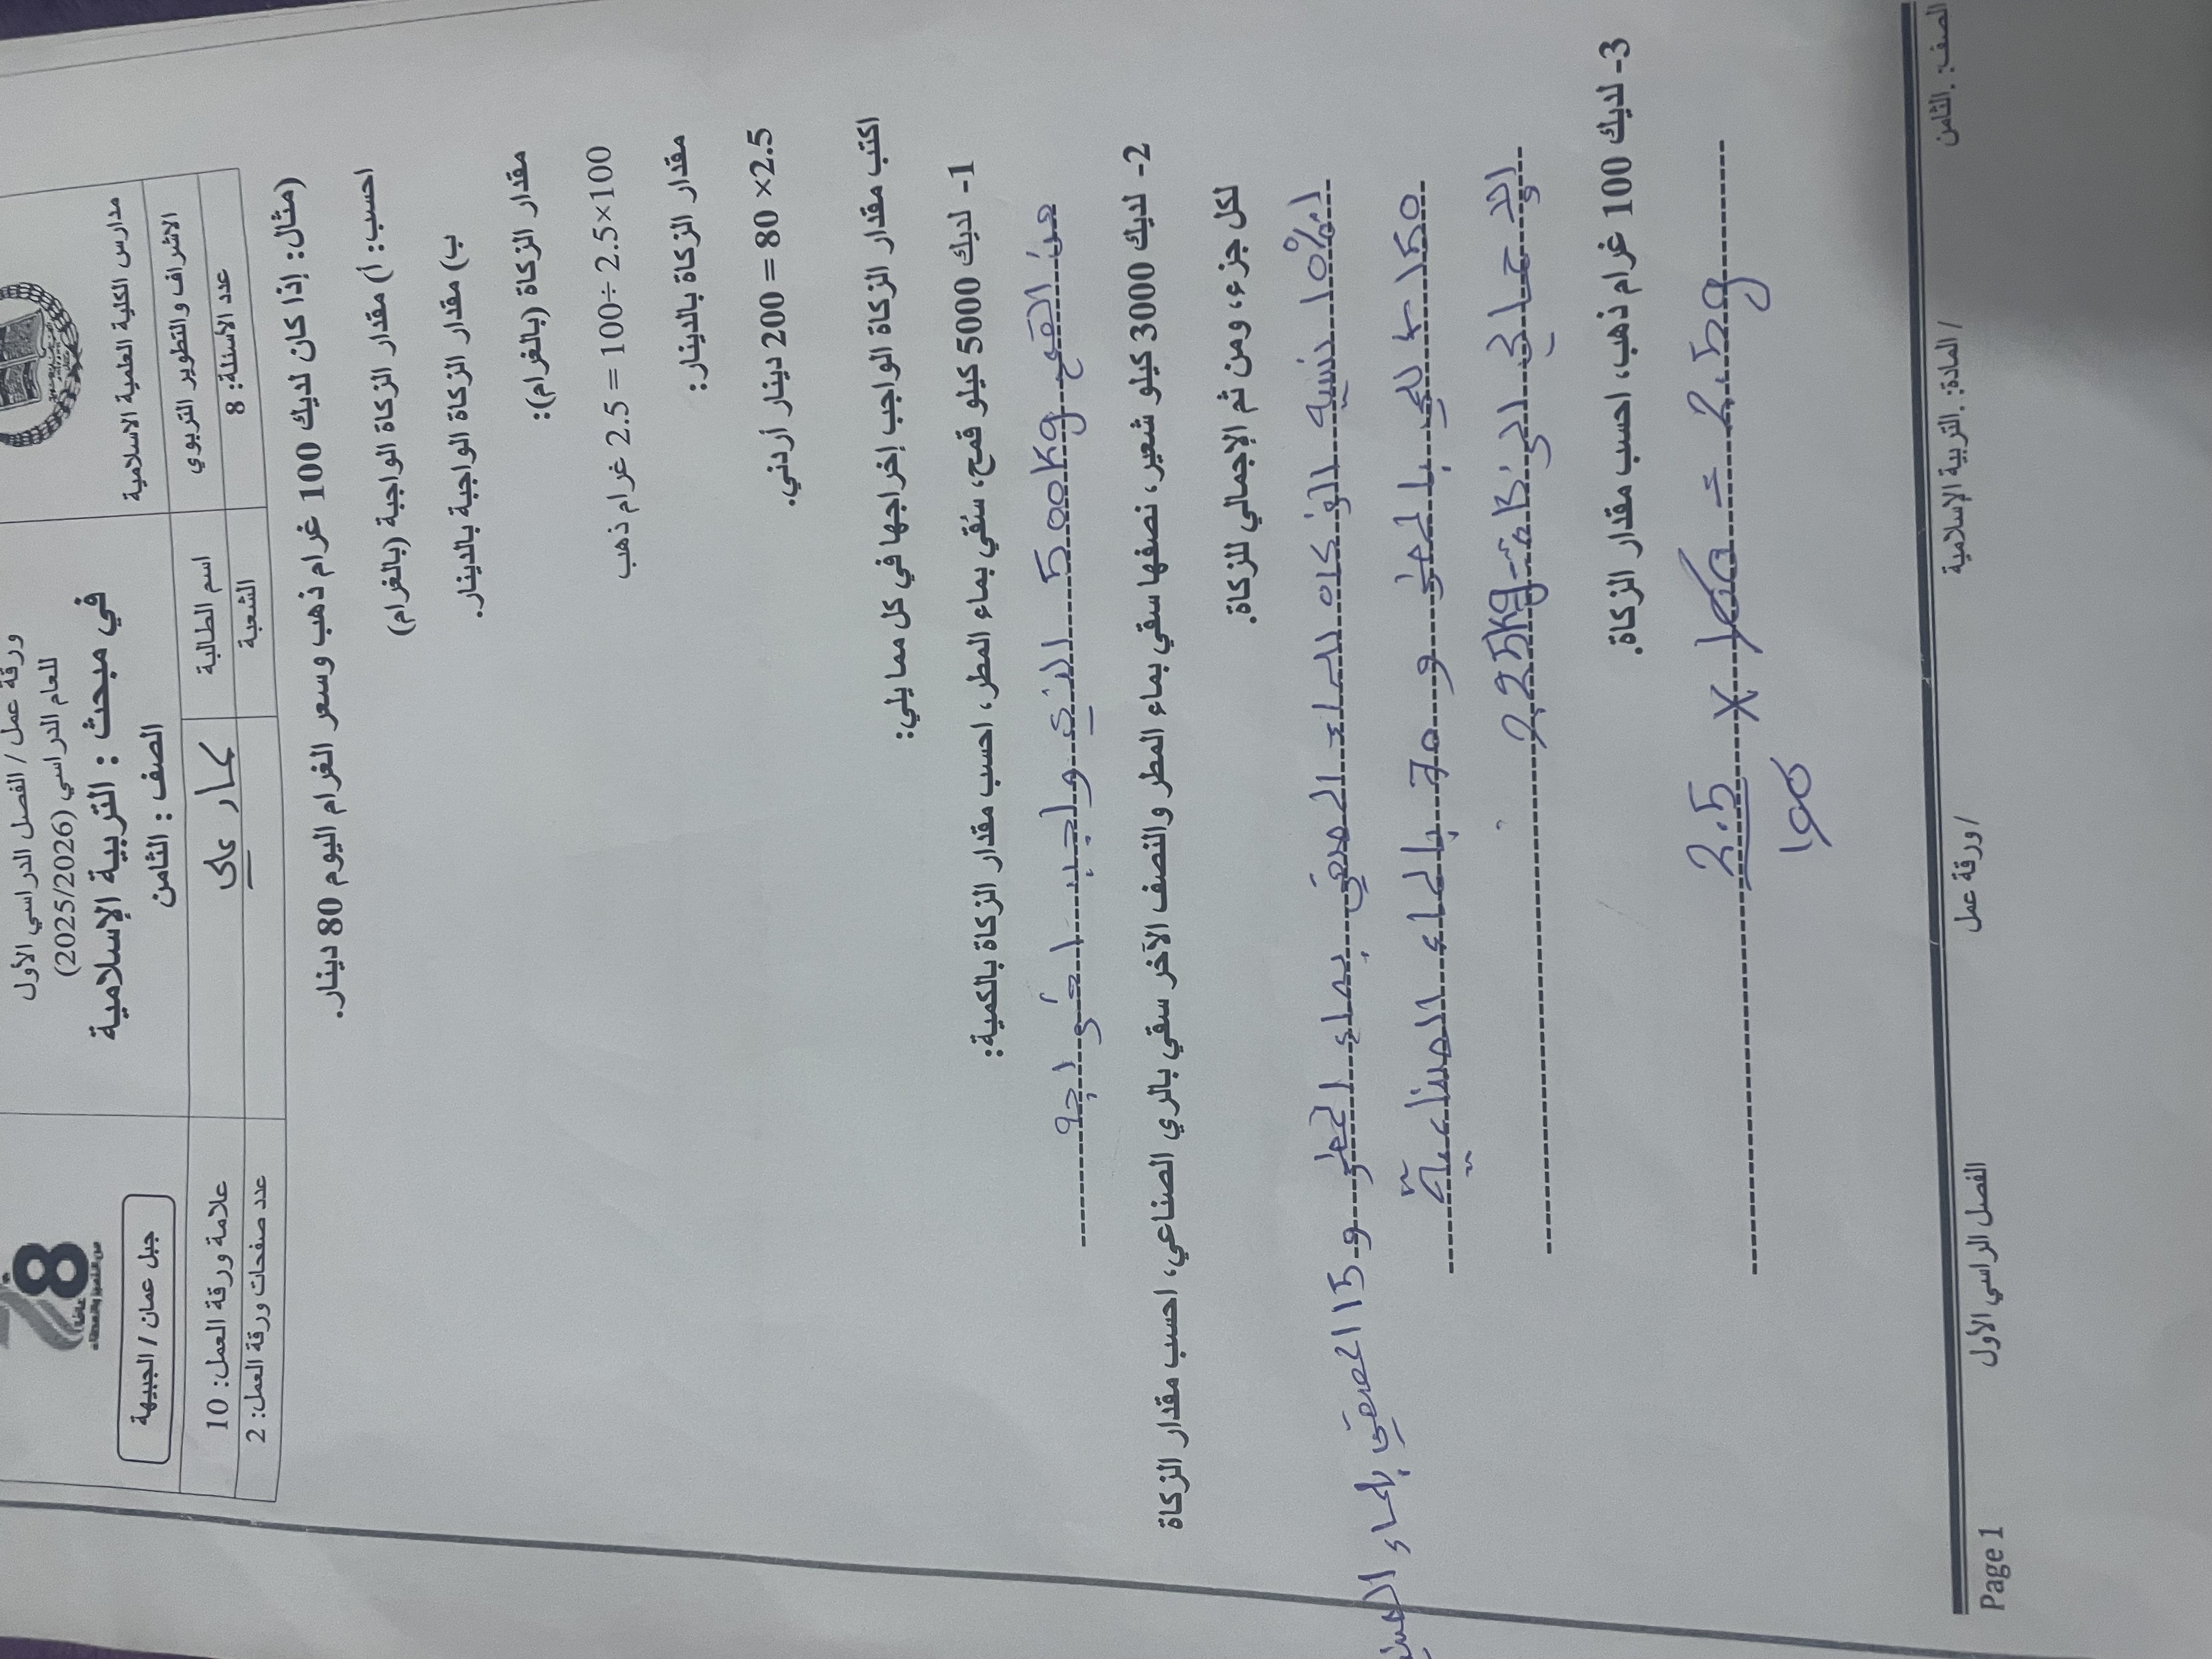 مدارس الكلية العلمية الاسلامية
الاشراف والتطوير التربوي
عدد الأسئلة: 8
ورقة عمل / الفصل الدراسي الأول
للعام الدراسي (2025/2026)
في مبحث : التربية الإسلامية
الصف : الثامن
اسم الطالبة
الشعبة
8
جبل عمان / الجبيهة
علامة ورقة العمل: 10
عدد صفحات ورقة العمل: 2
(مثال: إذا كان لديك 100 غرام ذهب وسعر الغرام اليوم 80 دينار.
احسب: أ) مقدار الزكاة الواجبة (بالغرام)
ب) مقدار الزكاة الواجبة بالدينار.
مقدار الزكاة (بالغرام):
100×2.5 ÷100 = 2.5 غرام ذهب
مقدار الزكاة بالدينار:
2.5× 80 = 200 دينار اردني.
اكتب مقدار الزكاة الواجب إخراجها في كل مما يلي:
1- لديك 5000 كيلو قمح، سقي بماء المطر، احسب مقدار الزكاة بالكمية:
من القمح 500Kg الذي واجب اخراجه
2- لديك 3000 كيلو شعير، نصفها سقي بماء المطر والنصف الآخر سقي بالري الصناعي، احسب مقدار الزكاة
لكل جزء، ومن ثم الإجمالي للزكاة.
10% نسبة الزكاة الماء المسقي بماء المطر و 5% المسقي بالماء
150 كغ بالمطر و 75 بالماء الصناعية
اﻹجمالي الزكاة = 225Kg
3- لديك 100 غرام ذهب، احسب مقدار الزكاة.
2.5 × 100 = 2.5g
100
الصف: .الثامن / المادة: .التربية الإسلامية / ورقة عمل الفصل الراسي الأول Page 1